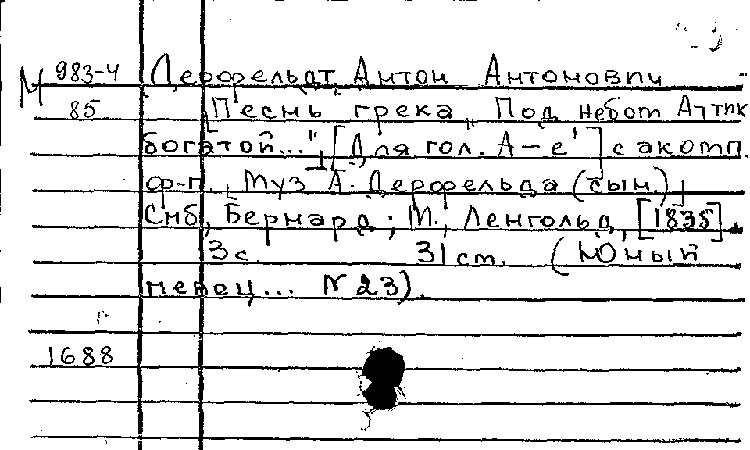 М 983-4 Дерфельдт Антон Антонович
85 [Песнь грека „Под небом Аттик
богатой..." [Для гол. A–e¹] с акомп.
ф-п., муз А. Дерфельда (сын.)]
Спб, Бернард; М., Ленгольд, [1835].
3 с. 31 ст. (Юный
певец... N 23).
1688